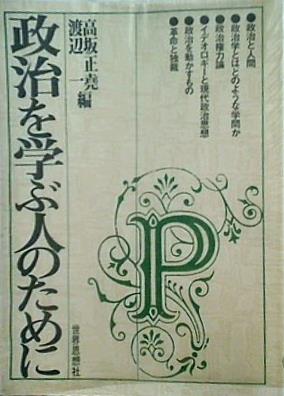 ●政治と人間
●政治学とはどのような学問か
●政治権力論
●イデオロギーと現代政治思想
●政治を動かすもの
●革命と独裁
高坂正堯
渡辺一 編
政治を学ぶ人のために
P
世界思想社